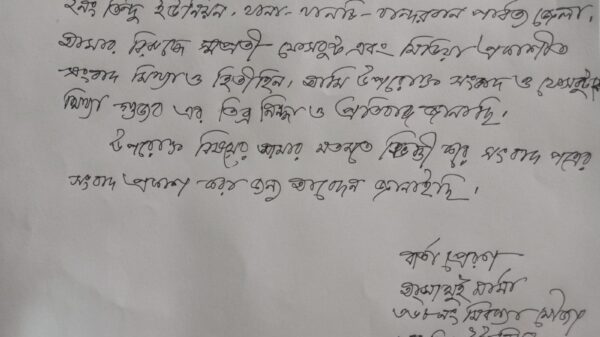 ২নং তিন্দু ইউনিয়ন, থানা- থানচি- বান্দরবান পার্বত্য জেলা,
আমার বিরুদ্ধে সম্প্রতী ফেসবুক এবং মিডিয়া প্রকাশিত
সংবাদ মিথ্যা ও ভিত্তিহিন, আমি উপরোক্ত সংবাদ ও ফেসবুকে
মিথ্যা গুজব এর তিব্র নিন্দা ও প্রতিবাদ জানাচ্ছি।
উপরোক্ত বিষয়ের আমার মতামত সংবাদ পত্রে
সংবাদ প্রকাশ করার জন্য আবেদন জানাইছি,
বার্তা প্রেরণ
মার্মা
নং মৌজা